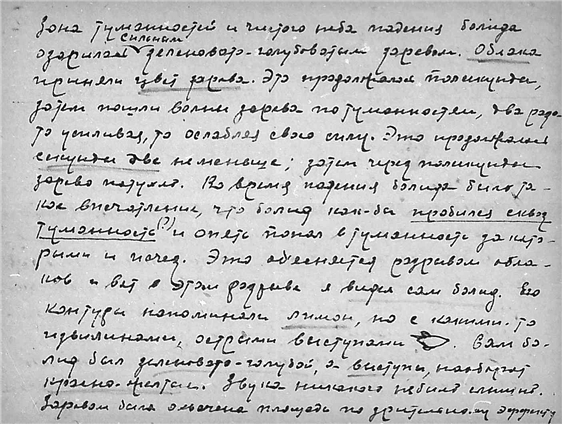 Зона туманностей и чистого неба падения болида
озарилась сильным зеленовато-голубоватым заревом. Облака
приняли цвет зарева. Это продолжалось полсекунды,
затем пошли волны зарева по туманностям, два раза
то усиливая, то ослабляя свою силу. Это продолжалось
секунды две не меньше; затем через полсекунды
зарево потухло. Во время падения болида было та-
кое впечатление, что болид как-бы пробился сквозь
туманность (?) и опять попал в туманность за кото-
рыми и исчез. Это объясняется разрывом обла-
ков и вот в этом разрыве я видел сам болид. Его
контуры напоминали лимон, но с какими-то
извилинами, острыми выступами. Сам бо-
лид был зеленовато-голубой, а выступы, наоборот
красно-желтые. Звука никакого не было слышно.
Заревом была охвачена площадь по зрительному эффекту